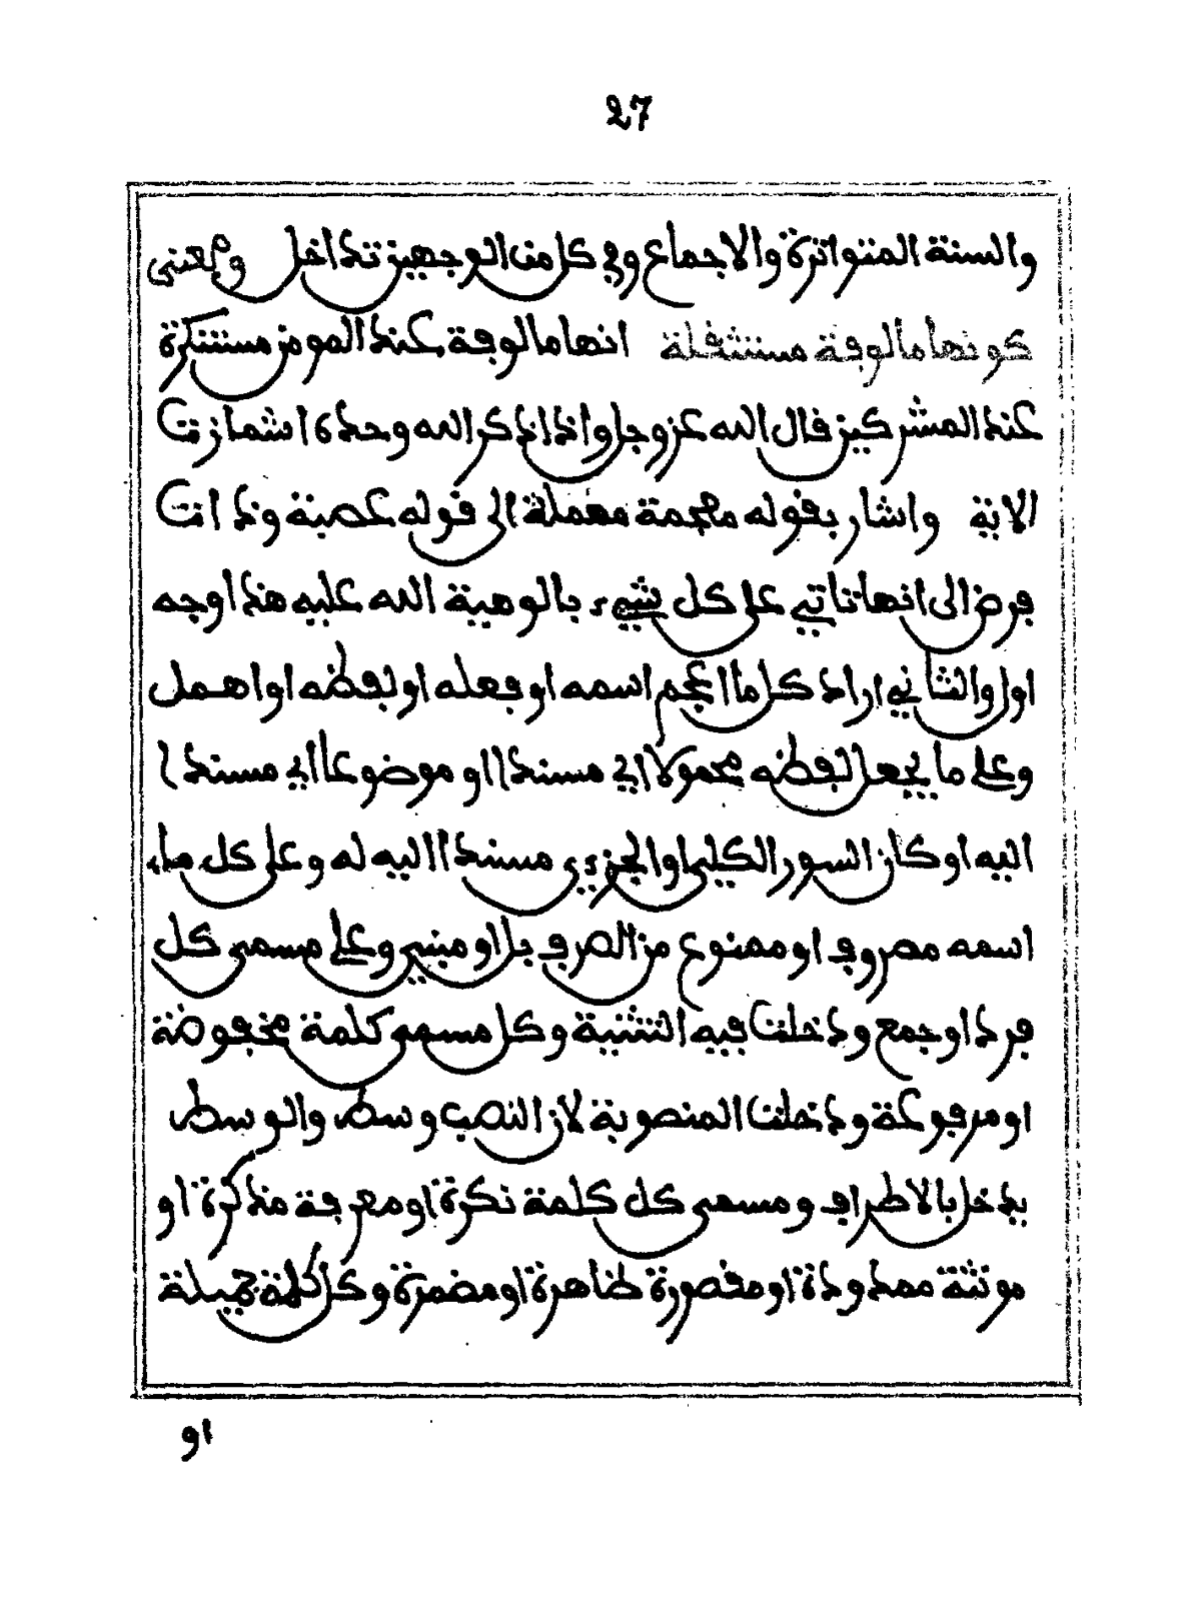 27
والسنة المتواترة والاجماع وفي كل من الوجهين تداخل ومعنى
كونها مالوفة مستثقلة انها مالوفة عند المومن مستنكرة
عند المشركين قال الله عز وجل واذا ذكر الله وحده اشمازت
الاية واشار بقوله معجمة مهملة الى قوله عصبة وذات
فرض الى انها تاتي على كل شيء بالوهية الله عليه هذا وجه
اول والثاني اراد كل ما اعجم اسمه او فعله او لفظه او اهمل
وعلى ما يجعل لفظه محمولا اي مسندا او موضوعا اي مسندا
اليه او كان السور الكلي او الجزءي مسندا اليه له وعلى كل ماء
اسمه مصروف او ممنوع من الصرف بل او مبني وعلى مسمى كل
فرد او جمع ودخلت فيه التثنية وكل مسمى كلمة مخفوضة
او مرفوعة ودخلت المنصوبة لان النصب وسط والوسط
يدخل بالاطراف ومسمى كل كلمة نكرة او معرفة مذكرة او
مونثة ممدودة او مقصورة ظاهرة او مضمرة وكل كلمة جميلة
او